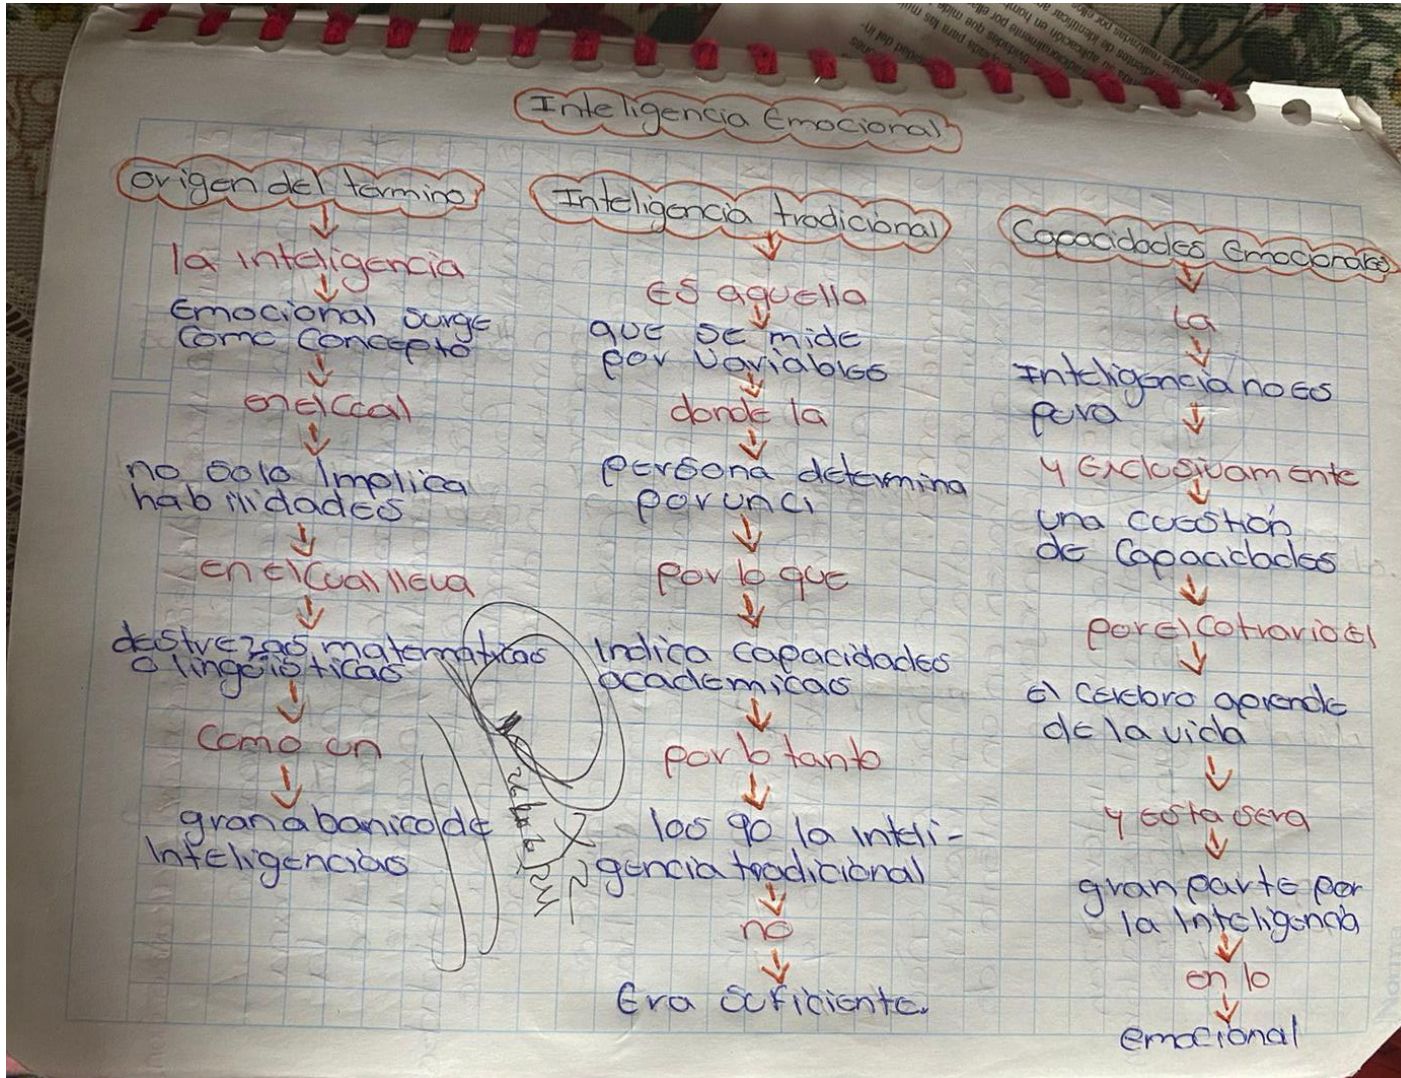 Inteligencia Emocional
origen del termino
la inteligencia
Emocional surge
como concepto
en el ccal
no solo Implica
habilidades
en el cual lleva
destrezas matematicas
o lingüisticas
Como un
gran abanico de
Inteligencias
Inteligencia tradicional
Es aquella
que se mide
por variables
donde la
persona determina
por un ci
por lo que
indica capacidades
academicas
por lo tanto
los 90 la inteli-
gencia tradicional
no
Era suficiente.
Capacidades Emocionales
La
Inteligencia no es
pura
y Exclusivamente
una cuestión
de Capacidades
por el cotrario el
el cerebro aprende
de la vida
y esta sera
gran parte por
la Inteligencia
en lo
emocional